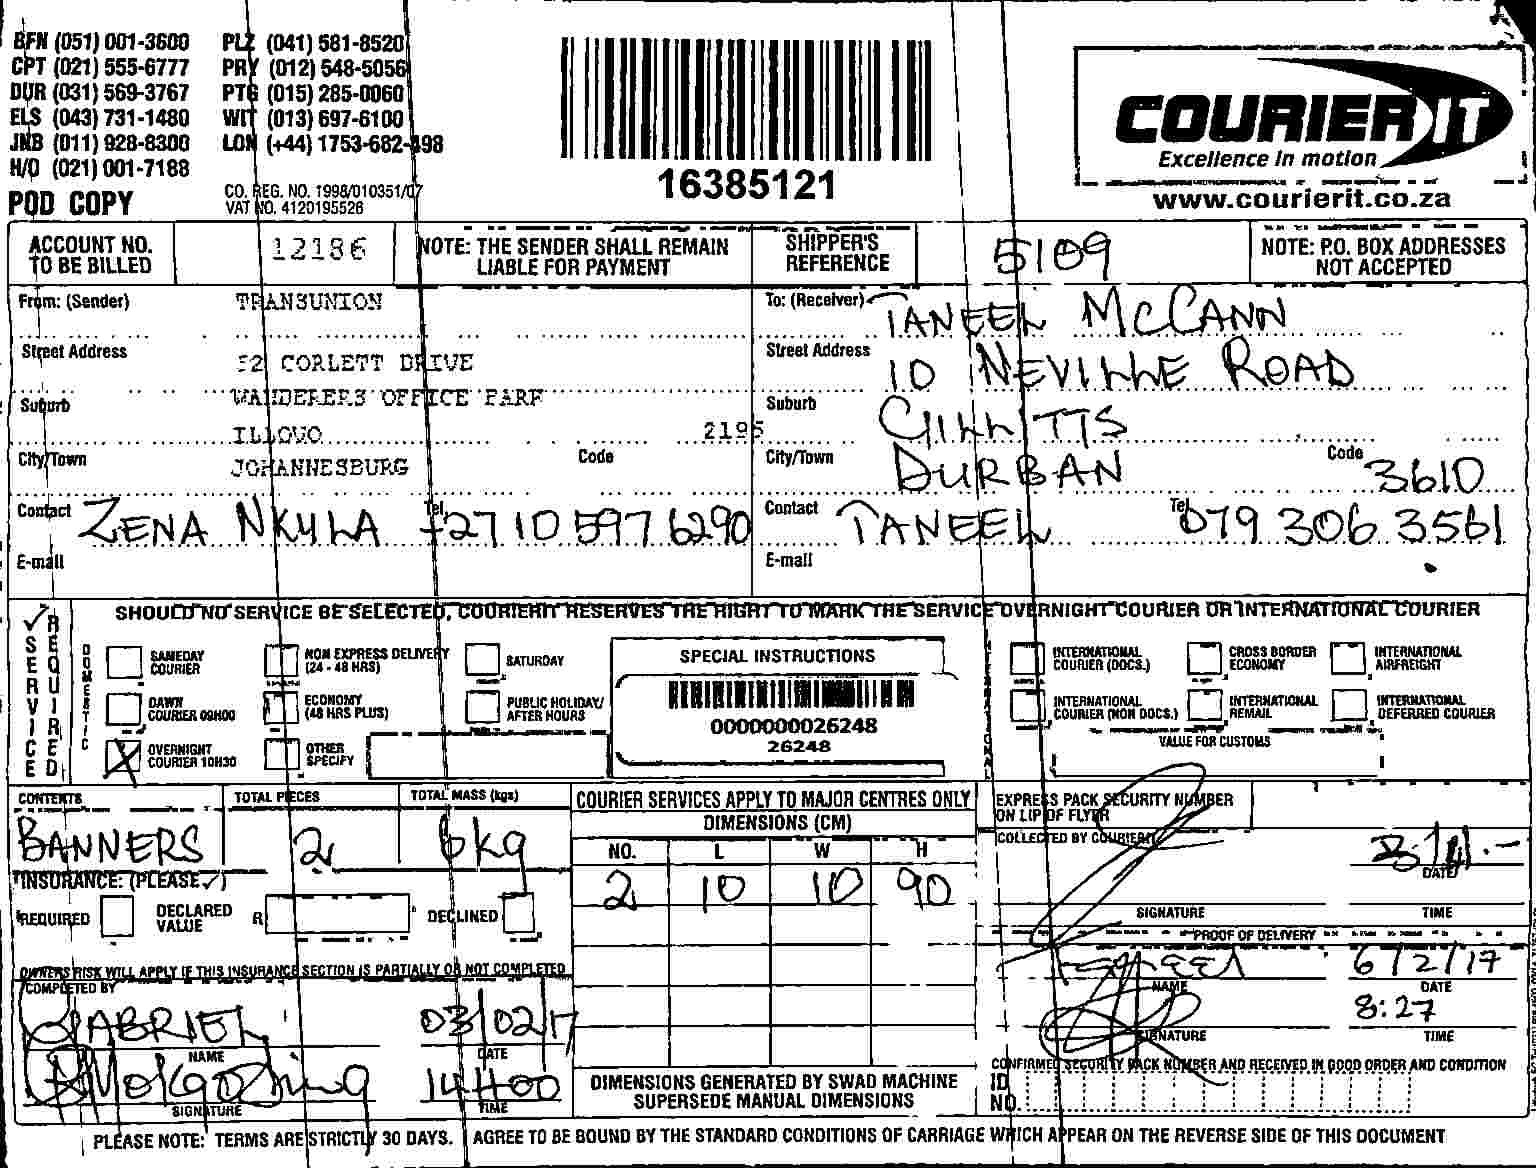 BFN (051) 001-3600 PLZ (041) 581-8520
CPT (021) 555-6777 PRY (012) 548-5056
DUR (031) 569-3767 PTG (015) 285-0060
ELS (043) 731-1480 WIT (013) 697-6100
JNB (011) 928-8300 LON (+44) 1753-682-498
H/O (021) 001-7188
POD COPY
CO. REG. NO. 1998/010351/07
VAT NO. 4120195526
16385121
COURIER IT
Excellence in motion
www.courierit.co.za
ACCOUNT NO. TO BE BILLED 12186
NOTE: THE SENDER SHALL REMAIN LIABLE FOR PAYMENT
SHIPPER'S REFERENCE 5109
NOTE: P.O. BOX ADDRESSES NOT ACCEPTED
From: (Sender) TRANSUNION
Street Address 52 CORLETT DRIVE
Suburb WANDERERS OFFICE PARK
ILLOVO 2196
City/Town JOHANNESBURG Code
Contact ZENA NKULA Tel +27 10 597 6290
E-mail
To: (Receiver) TANEEL McCANN
Street Address 10 NEVILLE ROAD
Suburb GILLITTS
City/Town DURBAN Code 3610
Contact TANEEL Tel 079 306 3561
E-mail
SERVICE REQUIRED
SHOULD NO SERVICE BE SELECTED, COURIERIT RESERVES THE RIGHT TO MARK THE SERVICE OVERNIGHT COURIER OR INTERNATIONAL COURIER
DOMESTIC
SAMEDAY COURIER
NON EXPRESS DELIVERY (24 - 48 HRS)
SATURDAY
DAWN COURIER 09H00
ECONOMY (48 HRS PLUS)
PUBLIC HOLIDAY/ AFTER HOURS
OVERNIGHT COURIER 10H30
OTHER SPECIFY
SPECIAL INSTRUCTIONS
0000000026248
26248
INTERNATIONAL COURIER (DOCS.)
CROSS BORDER ECONOMY
INTERNATIONAL AIRFREIGHT
INTERNATIONAL COURIER (NON DOCS.)
INTERNATIONAL REMAIL
INTERNATIONAL DEFERRED COURIER
VALUE FOR CUSTOMS
CONTENTS BANNERS
TOTAL PIECES 2
TOTAL MASS (kgs) 6kg
INSURANCE: (PLEASE ✓)
REQUIRED DECLARED VALUE R DECLINED
OWNERS RISK WILL APPLY IF THIS INSURANCE SECTION IS PARTIALLY OR NOT COMPLETED
COMPLETED BY
GABRIEL 03/02/17
NAME DATE
14H00
SIGNATURE TIME
COURIER SERVICES APPLY TO MAJOR CENTRES ONLY
DIMENSIONS (CM)
NO. L W H
2 10 10 90
DIMENSIONS GENERATED BY SWAD MACHINE
SUPERSEDE MANUAL DIMENSIONS
EXPRESS PACK SECURITY NUMBER
ON LIP OF FLYER
COLLECTED BY COURIERIT
DATE
SIGNATURE TIME
PROOF OF DELIVERY
6/2/17
NAME DATE
8:27
SIGNATURE TIME
CONFIRMED SECURITY PACK NUMBER AND RECEIVED IN GOOD ORDER AND CONDITION
ID NO.
PLEASE NOTE: TERMS ARE STRICTLY 30 DAYS. I AGREE TO BE BOUND BY THE STANDARD CONDITIONS OF CARRIAGE WHICH APPEAR ON THE REVERSE SIDE OF THIS DOCUMENT